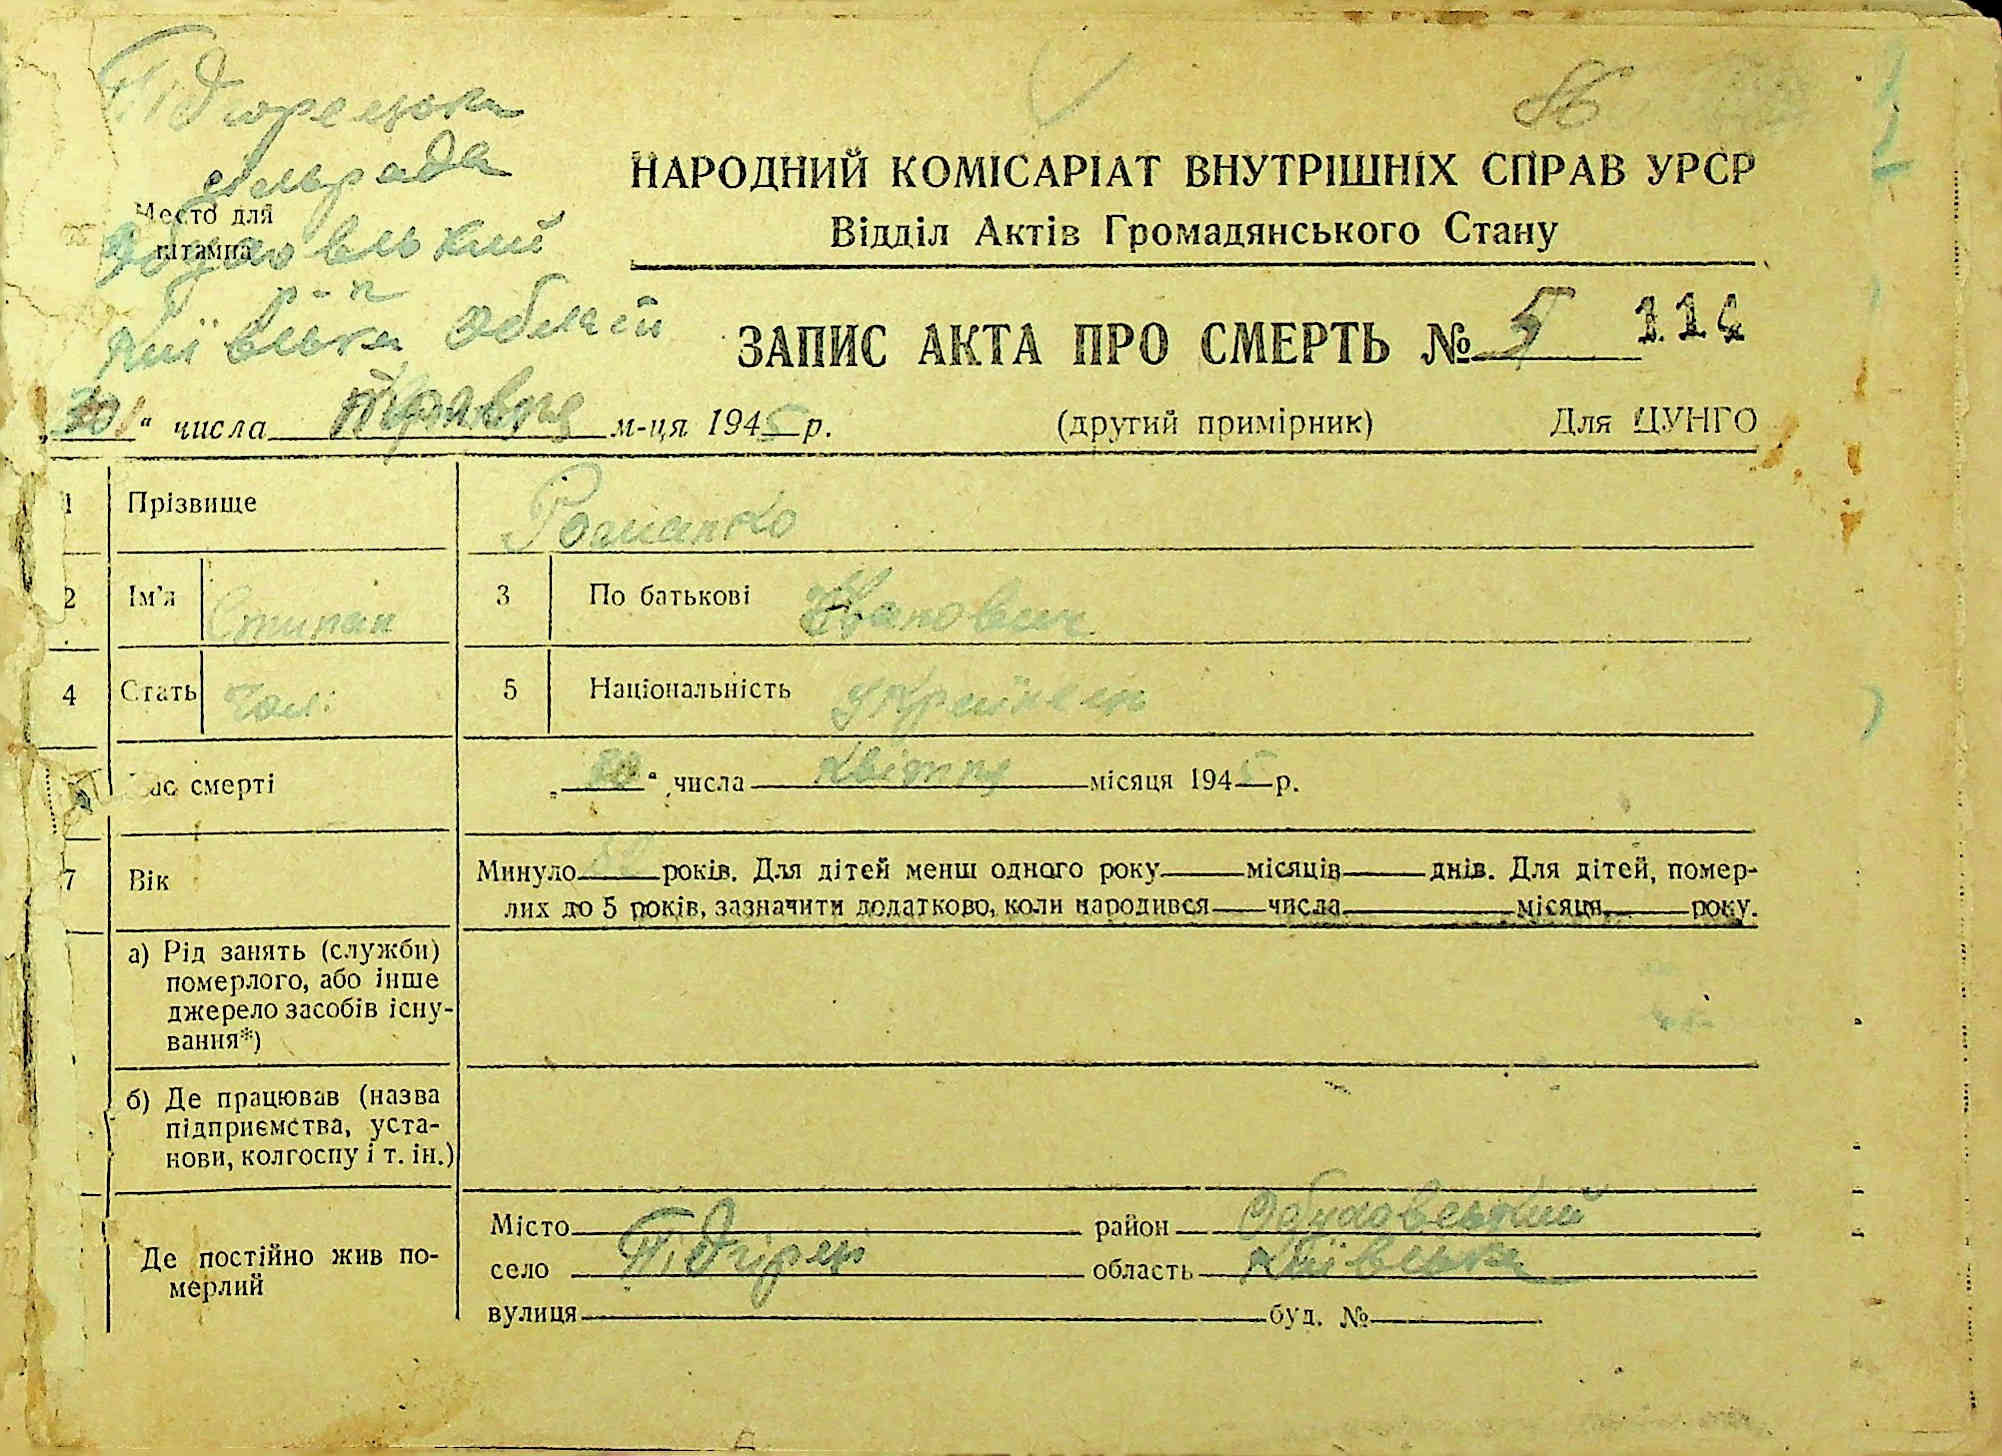 Підгорецька
сільрада
Место для
штампа
Обухівський
р-н
Київська області
86
НАРОДНИЙ КОМІСАРІАТ ВНУТРІШНІХ СПРАВ УРСР
Відділ Актів Громадянського Стану
ЗАПИС АКТА ПРО СМЕРТЬ № 5 114
„30" числа травня м-ця 1945 р. (другий примірник) Для ЦУНГО
1 Прізвище Романко
2 Ім'я Степан 3 По батькові Іванович
4 Стать Чол. 5 Національність Українець
Час смерті „30" числа квітня місяця 1945 р.
7 Вік Минуло років. Для дітей менш одного року місяців днів. Для дітей, помер-
лих до 5 років, зазначити додатково, коли народився числа місяця року.
а) Рід занять (служби)
померлого, або інше
джерело засобів існу-
вання*)
б) Де працював (назва
підприємства, уста-
нови, колгоспу і т. ін.)
Де постійно жив по-
мерлий
Місто район Обухівський
село Підгірці область Київська
вулиця буд. №